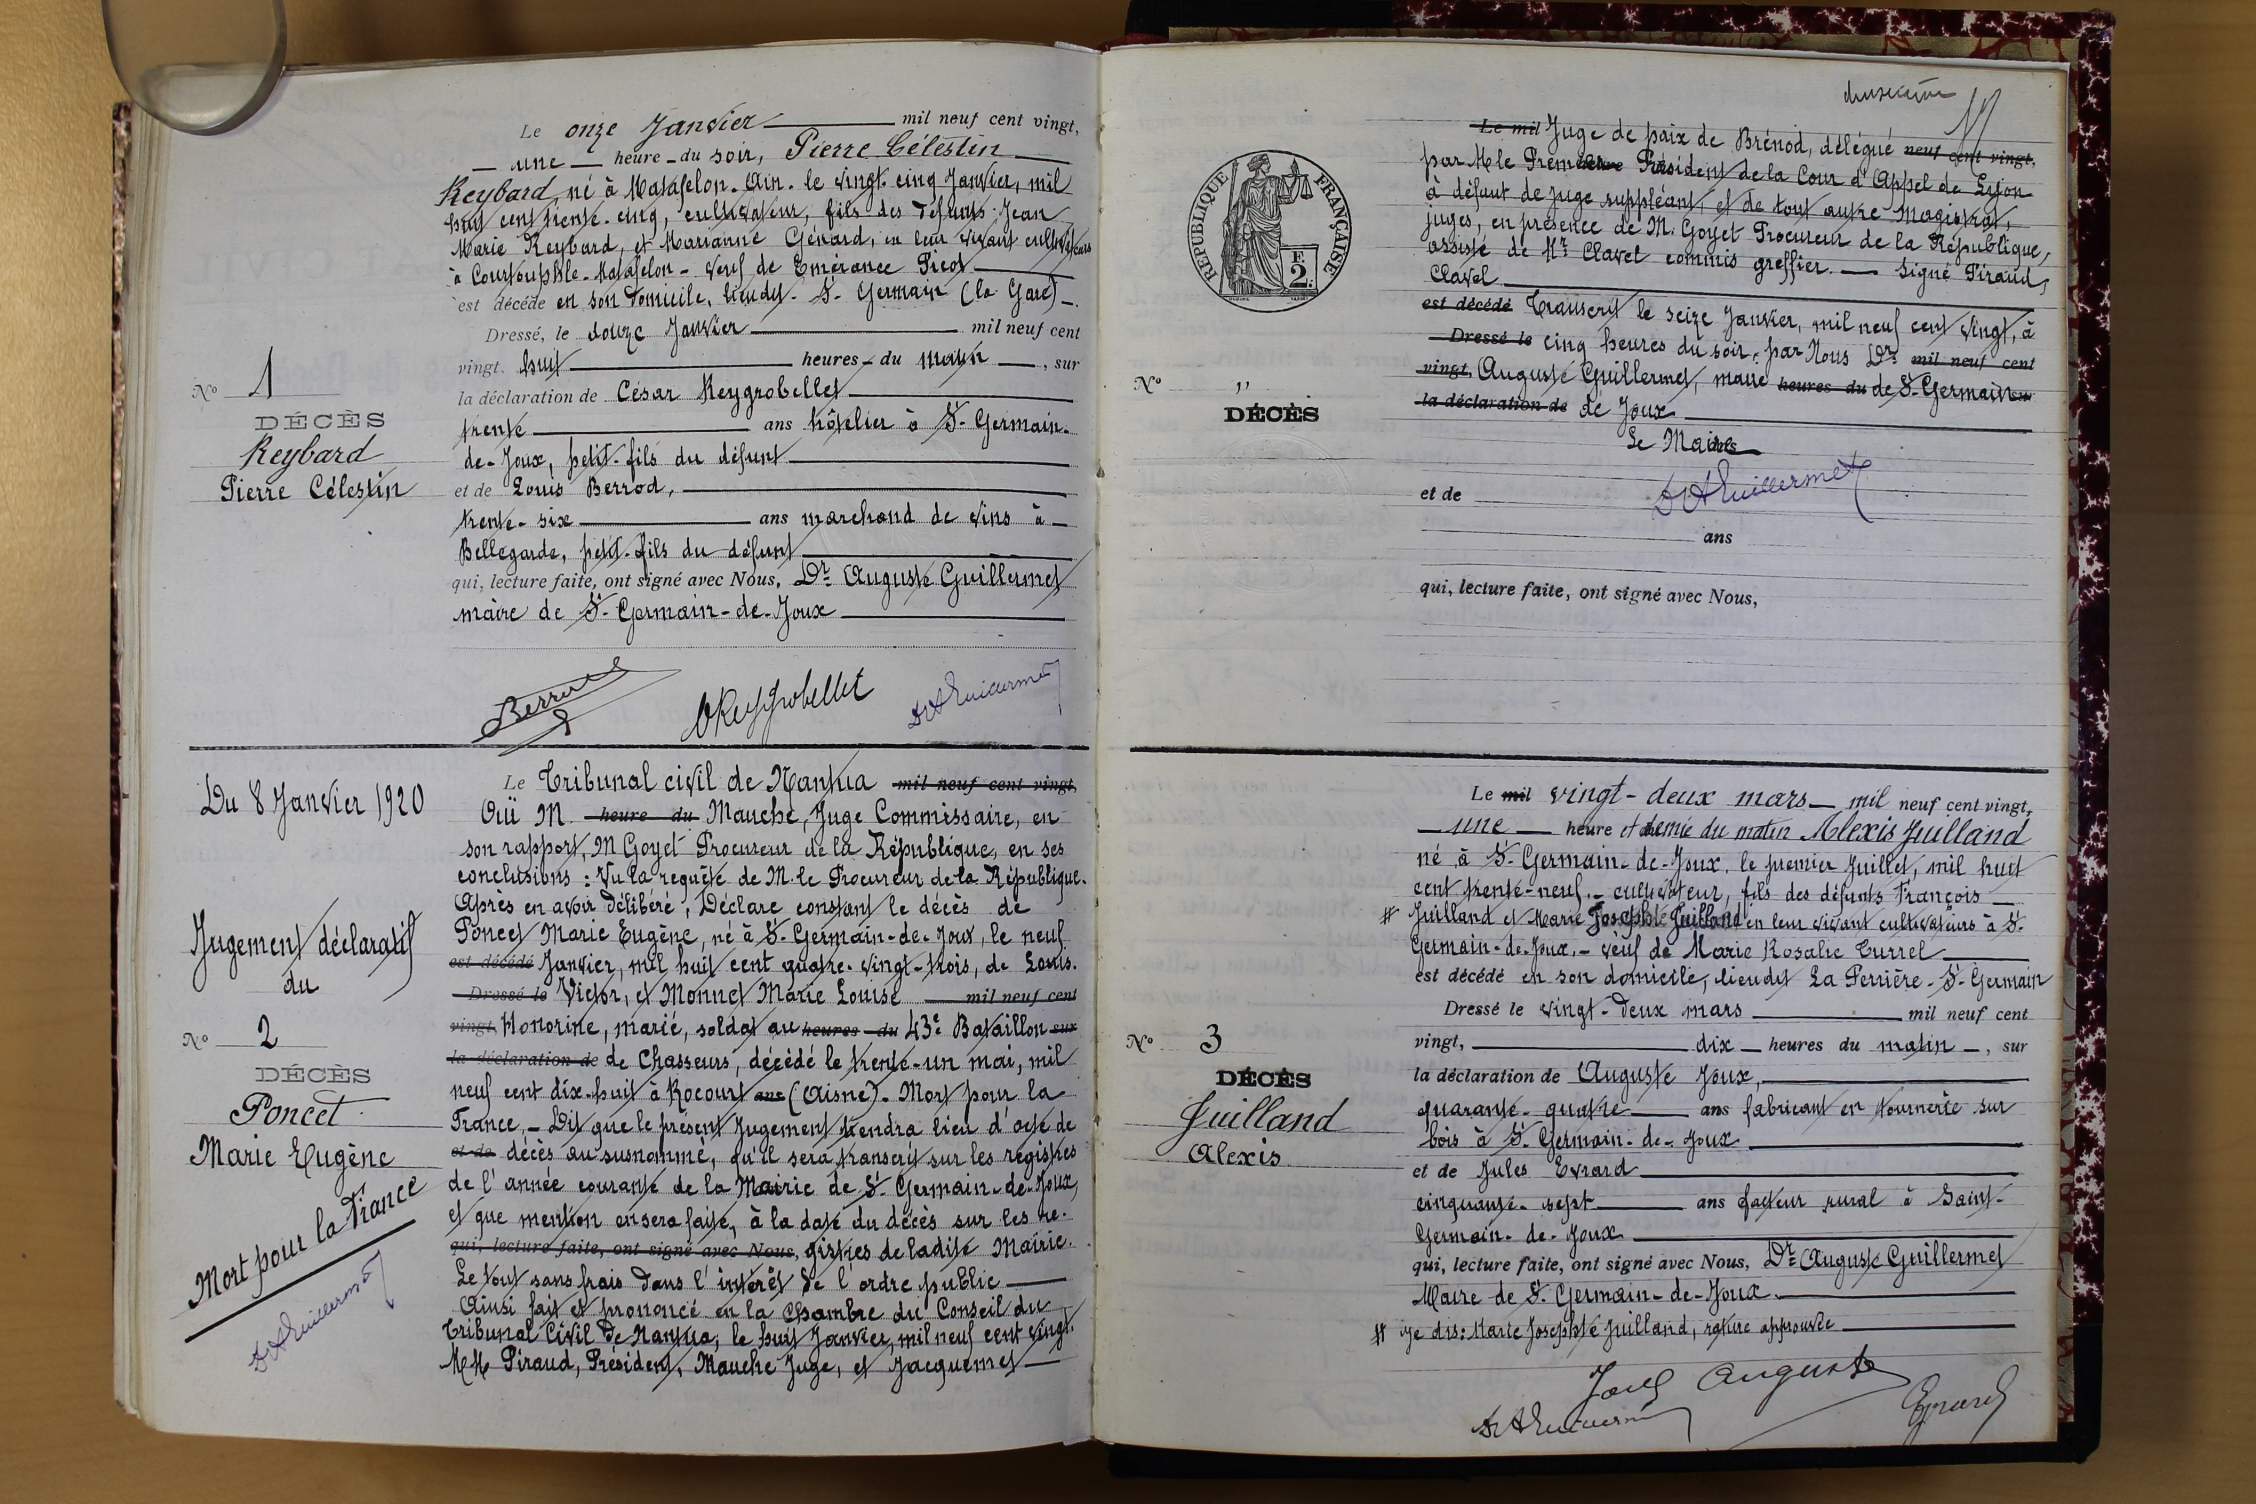 Le onze Janvier mil neuf cent vingt,
une heure du soir, Pierre Célestin
Reybard, né à Matafelon. Ain. le vingt. cinq Janvier, mil
huit cent trente. cinq, cultivateur, fils des défunts Jean
Marie Reybard, et Marianne Génard, en leur vivant cultivateurs
à Courtouphle. Matafelon - Veuf de Emérance Picot
est décédé en son domicile, lieudit. St. Germain (la Gare)
Dressé, le douze Janvier mil neuf cent
vingt. huit heures du matin, sur
la déclaration de César Reygrobellet
trente ans hôtelier à St. Germain.
de-Joux, petit-fils du défunt
et de Louis Berrod,
trente-six ans marchand de vins à
Bellegarde, petit-fils du défunt
qui, lecture faite, ont signé avec Nous, Dr Auguste Guillermet
maire de St. Germain-de-Joux
No 1
DÉCÈS
Reybard
Pierre Célestin
Berrod
CReygrobellet
Dr AGuillermet
Du 8 Janvier 1920
Jugement déclaratif
du
No 2
DÉCÈS
Poncet
Marie Eugène
Mort pour la France
Dr AGuillermet
Le Tribunal civil de Nantua mil neuf cent vingt,
Ouï M. heure du Mauche, Juge Commissaire, en
son rapport, M Goyet Procureur de la République, en ses
conclusions : Vu la requête de M. le Procureur de la République.
Après en avoir délibéré, Déclare constant le décès de
Poncet Marie Eugène, né à St. Germain-de-Joux, le neuf
est décédé Janvier, mil huit cent quatre-vingt-trois, de Louis.
Dressé le Victor, et Monnet Marie Louise mil neuf cent
vingt. Honorine, marié, soldat au heures du 43e Bataillon sur
la déclaration de de Chasseurs, décédé le trente-un mai, mil
neuf cent dix-huit à Rocourt ans (Aisne). Mort pour la
France, - Dit que le présent Jugement tiendra lieu d'acte de
et de décès au susnommé, qu'il sera transcrit sur les registres
de l'année courante de la Mairie de St. Germain-de-Joux,
et que mention en sera faite, à la date du décès sur les re-
qui, lecture faite, ont signé avec Nous, gistres de ladite Mairie.
Le tout sans frais dans l'intérêt de l'ordre public
Ainsi fait et prononcé en la Chambre du Conseil du
Tribunal Civil de Nantua, le huit Janvier, mil neuf cent vingt.
MM Piraud, Président, Mauche Juge, et Jacquemet
RÉPUBLIQUE FRANÇAISE
2F.
No "
DÉCÈS
Le mil Juge de paix de Brénod, délégué neuf cent vingt,
par M le Premier Président de la Cour d'Appel de Lyon
à défaut de Juge suppléant, et de tout autre Magistrat,
juges, en présence de M. Goyet Procureur de la République,
assisté de Mr Clavel commis greffier. Signé Piraud,
Clavel
est décédé Transcrit le seize Janvier, mil neuf cent vingt, à
Dressé le cinq heures du soir, par Nous Dr mil neuf cent
vingt, Auguste Guillermet, maire heures du de St. Germain
la déclaration de de Joux
Le Maire
et de Dr AGuillermet
ans
qui, lecture faite, ont signé avec Nous,
No 3
DÉCÈS
Juilland
Alexis
Le mil vingt-deux mars mil neuf cent vingt,
une heure et demie du matin Alexis Juilland
né à St. Germain-de-Joux, le premier Juillet, mil huit
cent trente-neuf. - cultivateur, fils des défunts François
# Juilland et Marie Josephte Juilland en leur vivant cultivateurs à St.
Germain-de-Joux. - veuf de Marie Rosalie Turrel
est décédé en son domicile, lieudit La Perrière - St. Germain
Dressé le vingt-deux mars mil neuf cent
vingt, dix heures du matin, sur
la déclaration de Auguste Joux,
quarante-quatre ans fabricant en tournerie sur
bois à St. Germain-de-Joux
et de Jules Evrard
cinquante-sept ans facteur rural à Saint-
Germain-de-Joux
qui, lecture faite, ont signé avec Nous, Dr Auguste Guillermet
Maire de St. Germain-de-Joux.
# Je dis: Marie Josephte Juilland, rature approuvée
Joux Auguste
Dr AGuillermet
Evrard